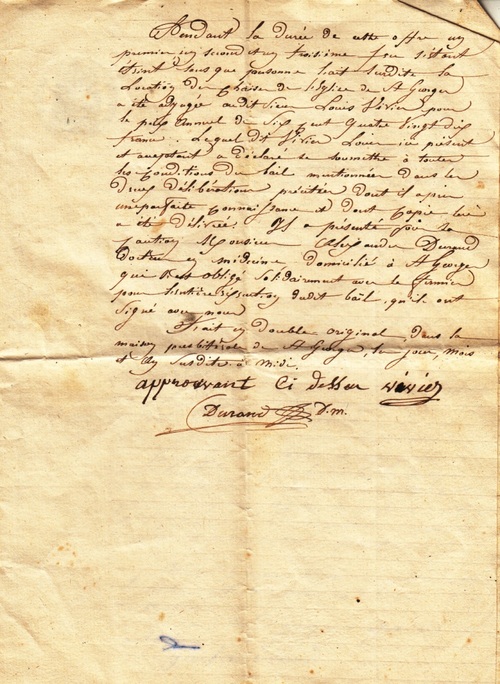 Pendant la durée de cette offre un
premier un second et un troisième feu s'étant
éteint sans que personne hait susdite la
Location des chaises de l'Eglise de St George
a été adjugée audit sieur Louis Vivier pour
le prix annuel de six cent quatre vingt dix
francs. Lequel dit Vivier Louis ici présent
et acceptant a déclaré se soumettre à toutes
les conditions du bail mentionnées dans les
deux délibérations précitées dont il a pris
une parfaite connaissance et dont copie lui
a été délivrée. Il a présenté pour sa
caution Monsieur Alexandre Durand
docteur en médecine domicilié à St George
qui s'est obligé solidairement avec le fermier
pour l'entière exécution dudit bail, qu'ils ont
signé avec nous
Fait en double original, dans la
maison presbitérale de St George, les jour, mois
et an susdits à midi.
approuvant ci dessus vivier
Durand D.m.